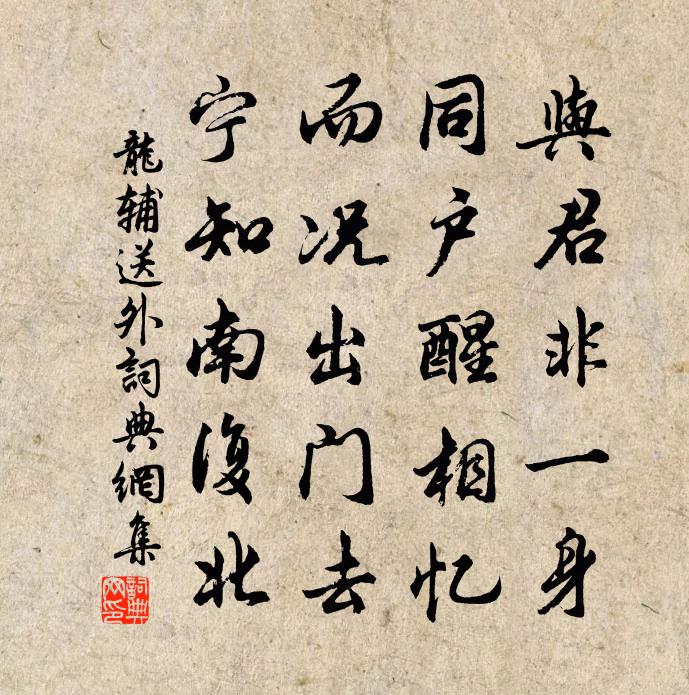 與君非一身
同户醒相忆
而况出门去
宁知南复北
龍辅送外詞典網集
詞典网印